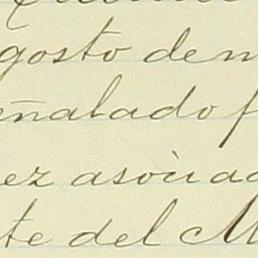 gosto de n
eñalado f
ez asociad
te del M